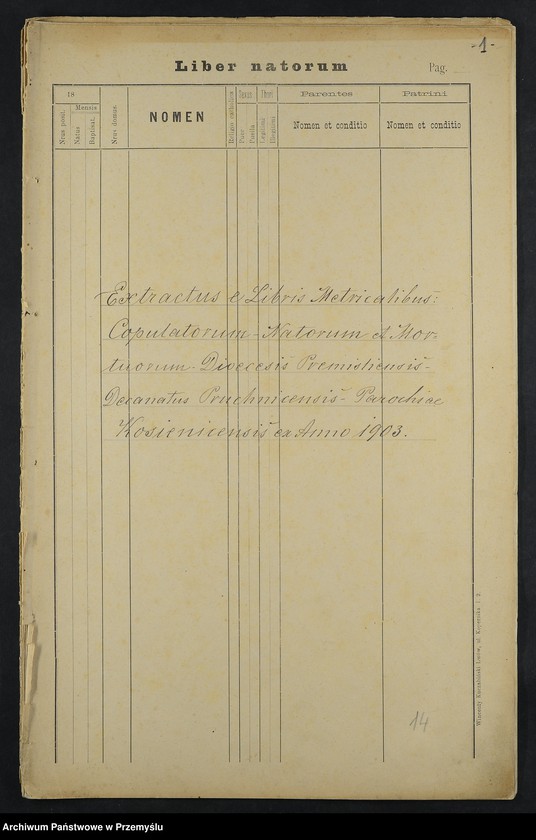 -1-
Liber natorum
Pag.
18
Mensis
Sexus
Thori
Parentes
Patrini
Nrus posit.
Natus
Baptisat.
Nrus domus.
NOMEN
Religio catholica
Puer
Puella
Legitimi
Illegitimi
Nomen et conditio
Nomen et conditio
Extractus e Libris Metricalibus:
Copulatorum - Natorum et Mor-
tuorum - Dioecesis Premisliensis -
Decanatus Pruchnicensis - Parochiae
Kosienicensis ex Anno 1903.
14
Archiwum Państwowe w Przemyślu